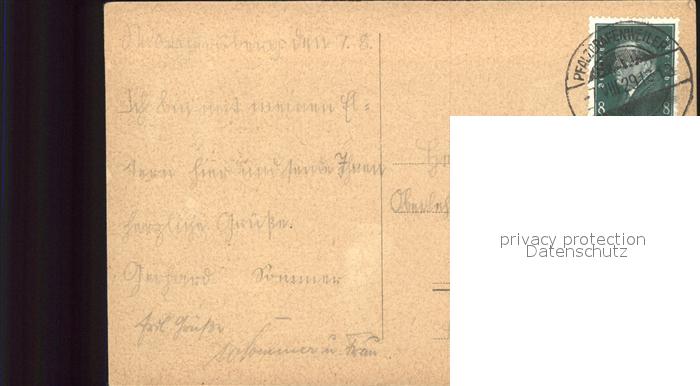 den 7. 8.
Ich bin mit meinen El=
tern hier und sende Ihnen
herzliche Grüße.
Gerhard Sommer
herzl. Grüße
Sommer u. Frau
PFALZGRAFENWEILER
8 8
Oberleh
privacy protection
Datenschutz